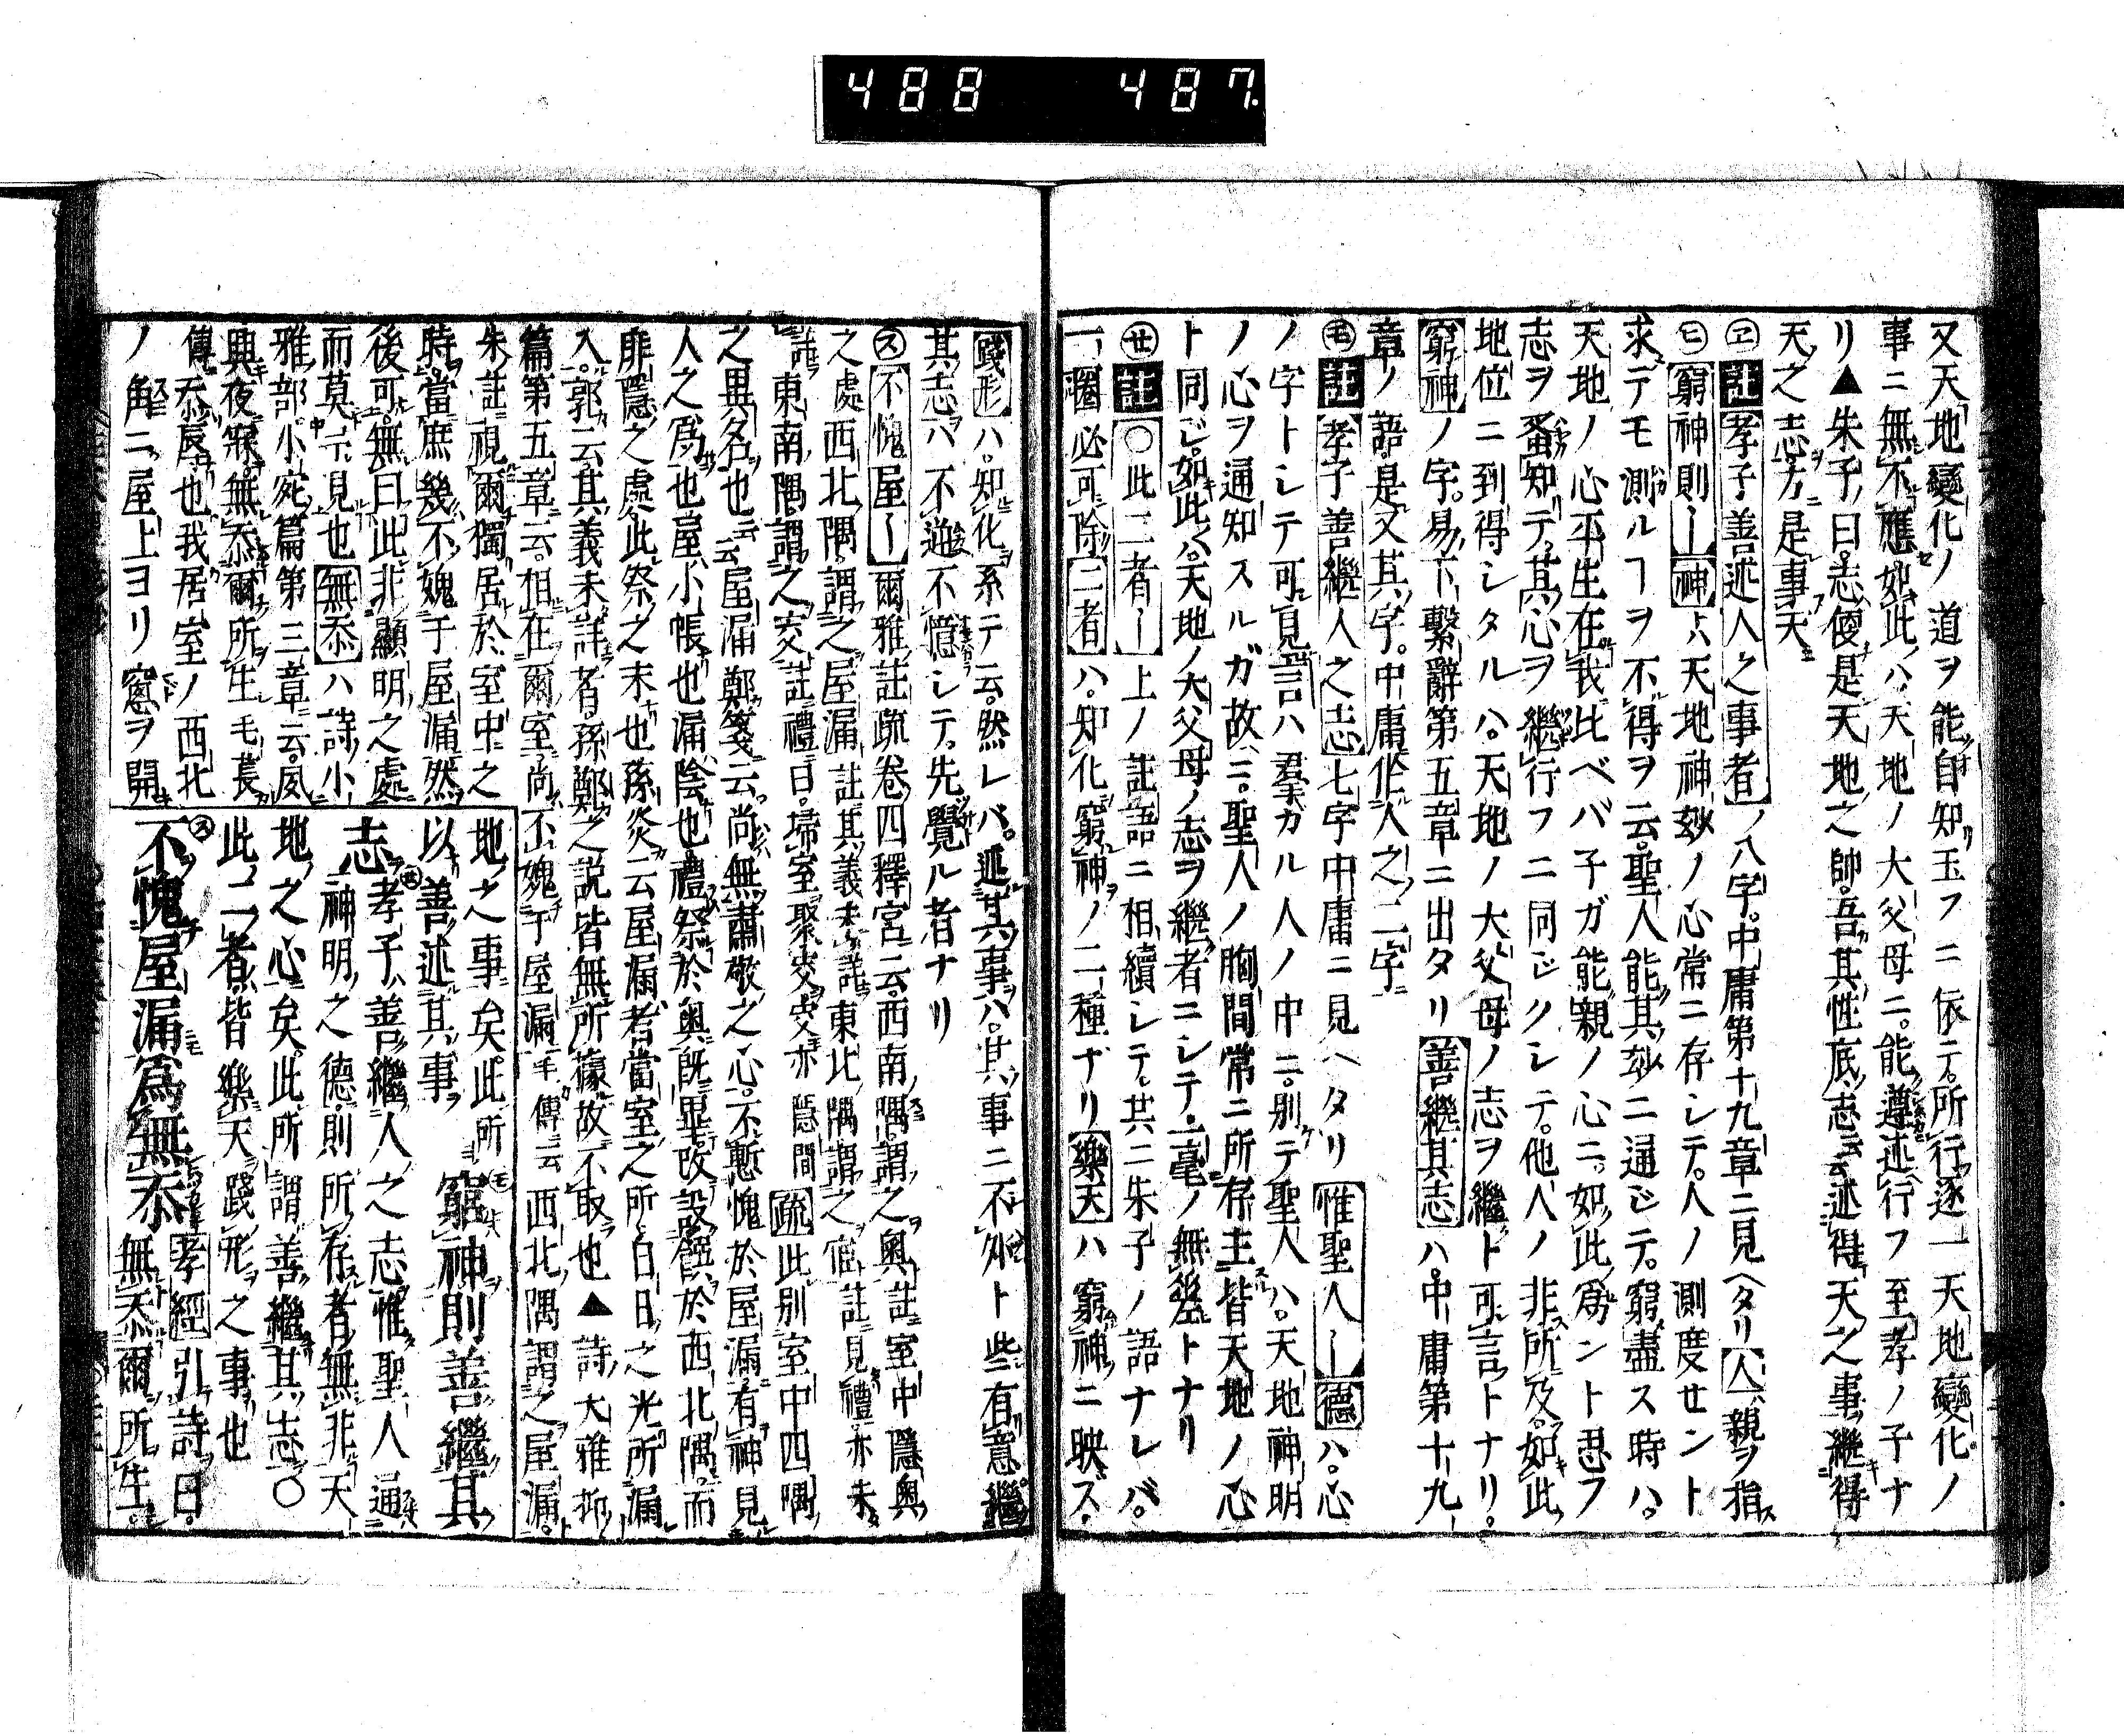 488 487.
又天地變化ノ道ヲ能自知玉フニ依テ。所行逐一天地變化ノ
事ニ無不應如此ハ天地ノ大父母ニ。能遵述行フ至孝ノ子ナ
リ▲朱子曰。志便是天地之帥。吾其性底志云云述得天之事繼得
天之志。方是事天
ヱ註孝子善述人之事者ノ八字。中庸第十九章ニ見ヘタリ人親ヲ指ス
ヒ窮神則ー神ハ天地神妙ノ心常ニ存シテ。人ノ測度セント
求テモ測ルヿヲ不得ヲ云。聖人能其妙ニ通ジテ。窮盡ス時ハ。
天地ノ心平生在我比ベバ子ガ能親ノ心ニ。如此爲ント思フ
志ヲ蚤知テ。其心ヲ繼行フニ同ジクシテ。他人ノ非所及。如此
地位ニ到得シタルハ。天地ノ大父母ノ志ヲ繼ト可言トナリ。
窮神ノ字。易下繫辭第五章ニ出タリ善繼其志ハ。中庸第十九
章ノ語。是又其字。中庸作人之二字
モ註孝子善繼人之志七字中庸ニ見ヘタリ惟聖人ー德ハ。心
ノ字トシテ可見言ハ羣ガル人ノ中ニ。別テ聖人ハ。天地神明
ノ心ヲ通知スルガ故ニ。聖人ノ胸間常ニ所存主皆天地ノ心
ト同ジ。如此ハ天地ノ大父母ノ志ヲ繼者ニシテ。一毫ノ無差トナリ
世註○此二者ー上ノ註語ニ相續シテ。共ニ朱子ノ語ナレバ。
一圈必可除二者ハ。知化窮神ノ二種ナリ樂天ハ窮神ニ映ス。
踐形ハ。知化ヲ系テ云。然レバ。述其事ハ。其事ニ不外ト些有意繼
其志ハ不逆不憶シテ。先覺ル者ナリ
ス不愧屋ー爾雅註疏卷四釋宮云。西南隅謂之奧註室中隱奧
之處西北隅謂之屋漏註其義未詳東北隅謂之宧註見禮亦未
詳東南隅謂之窔註禮曰。埽室聚窔窔亦隱闇疏此別室中四隅
之異名也云云屋漏鄭箋云。尚無肅敬之心。不慙愧於屋漏有神見
人之爲也屋小帳也漏隱也禮祭於奧既畢。改設饌於西北隅。而
厞隱之處此祭之末也孫炎云屋漏者當室之所白日之光所漏
入。郭云。其義未詳者。孫鄭之說皆無所據。故不取也▲詩大雅抑
篇第五章云。相在爾室。尚不媿于屋漏毛傳云西北隅謂之屋漏。
朱註視爾獨居於室中之
時。當庶幾不媿于屋漏。然
後可。無曰此非顯明之處
而莫予見也無忝ハ詩小
雅部小宛篇第三章云。夙
興夜寐。無忝爾所生毛萇
傳忝辱也我居室ノ西北
ノ角ニ屋上ヨリ窓ヲ開
地之事矣。此所
以善述其事
窮神則善繼其
志孝子善繼人之志惟聖人通
神明之德則所存者無非天
地之心矣。此所謂善繼其志○
此二者皆樂天踐形之事也
不愧屋漏爲無忝孝經引詩曰。
無忝爾所生。